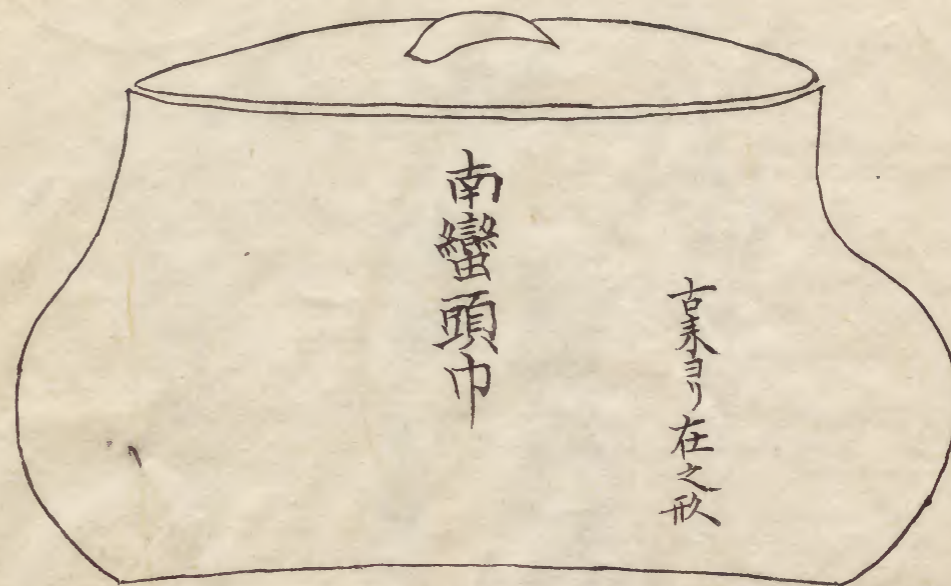 古来ヨリ在之形
南蠻頭巾